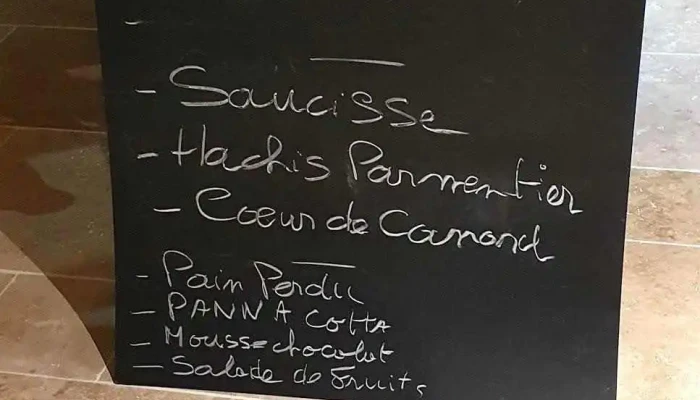 -
- Saucisse
- Hachis Parmentier
- Coeur de Canard
- Pain Perdu
- PANNA COTTA
- Mousse chocolat
- Salade de Fruits